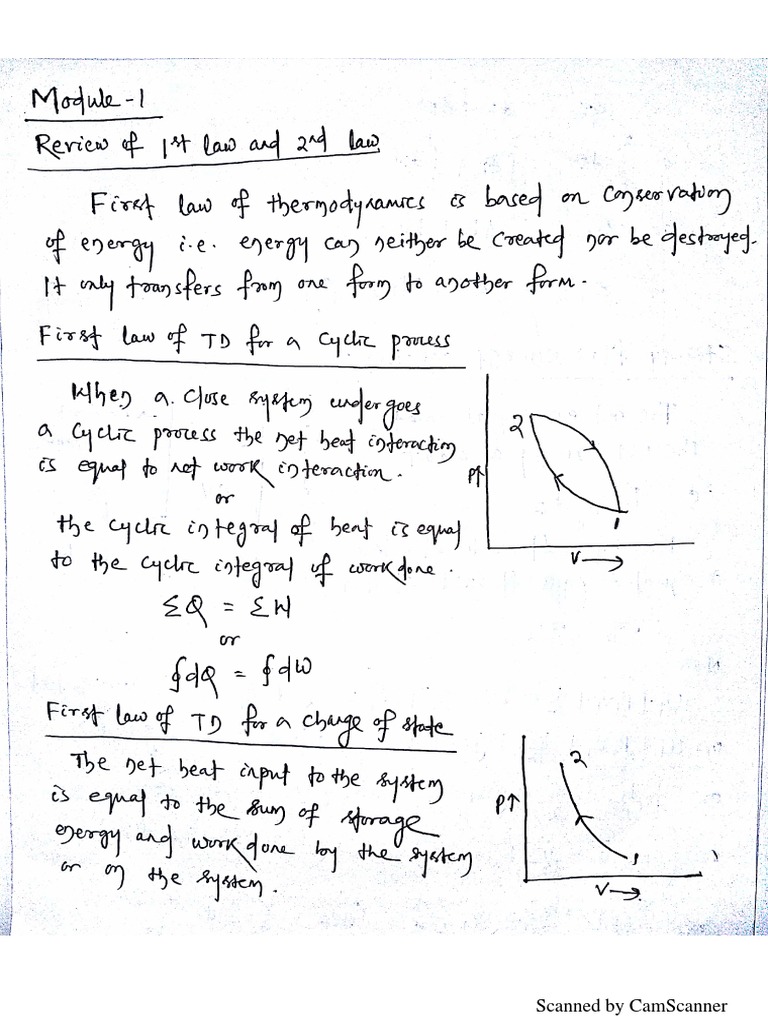 Module-1
Review of 1st law and 2nd law
First law of thermodynamics is based on conservation
of energy i.e. energy can neither be created nor be destroyed.
It only transfers from one form to another form.
First law of TD for a cyclic process
When a close system undergoes
a cyclic process the net heat interaction
is equal to net work interaction.
or
the cyclic integral of heat is equal
to the cyclic integral of workdone.
ΣQ = ΣW
or
∮dQ = ∮dW
2
P↑
1
V→
First law of TD for a change of state
The net heat input to the system
is equal to the sum of storage
energy and work done by the system
or on the system.
2
P↑
1
V→
Scanned by CamScanner